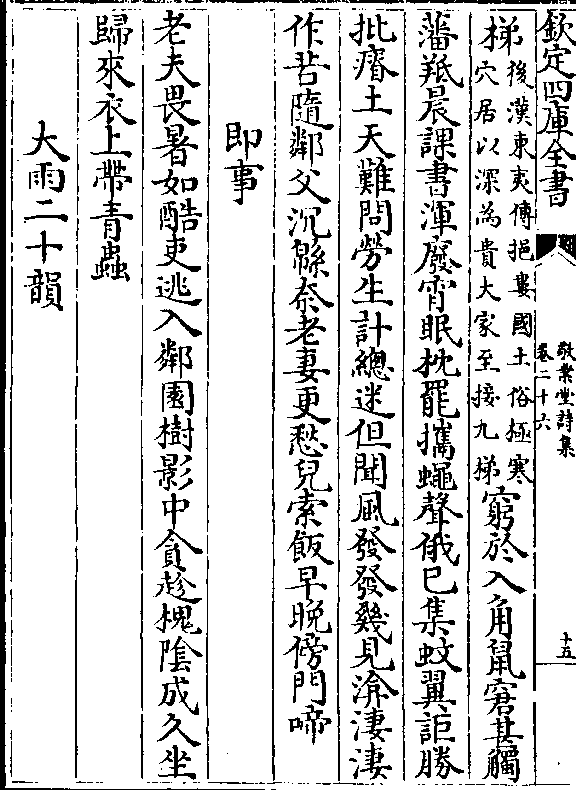 欽定四庫全書
敬業堂詩集
卷二十六
十五
梯
後漢東夷傳挹婁國土俗極寒
穴居以深為貴大家至接九梯
窮於入角鼠窘甚觸
藩羝晨課書渾廢宵眠枕罷攜蠅聲俄已集蚊翼詎勝
批瘠土天難問勞生計總迷但聞風發發幾見渰淒淒
作苦隨鄰父沉緜奈老妻更愁兒索飯早晚傍門啼
即事
老夫畏暑如酷吏逃入鄰園樹影中貪趁槐陰成久坐
歸來衣上帶青蟲
大雨二十韻